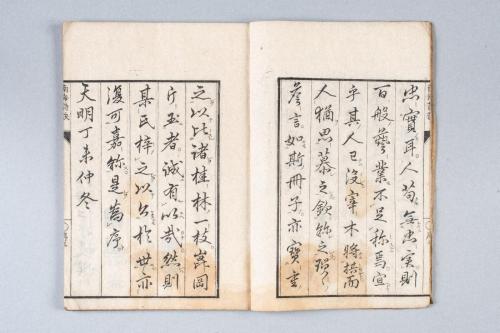 忠實耳人苟無忠実則
百般藝業不足称焉宜
乎其人已没宰木將拱而
人猶思慕之欽称之瑣々
詹言如斯冊子亦寶重
之以比諸桂林一枝崑岡
片玉者誠有以哉然則
某氏梓之以公於世亦
復可嘉称是為序
天明丁未仲冬
南海詩訣